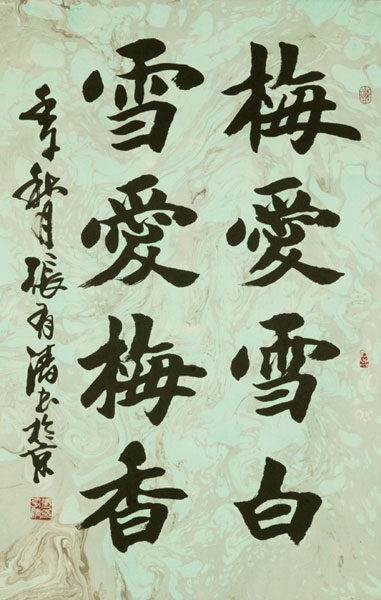 梅愛雪白
雪愛梅香
秋月張有清書於京